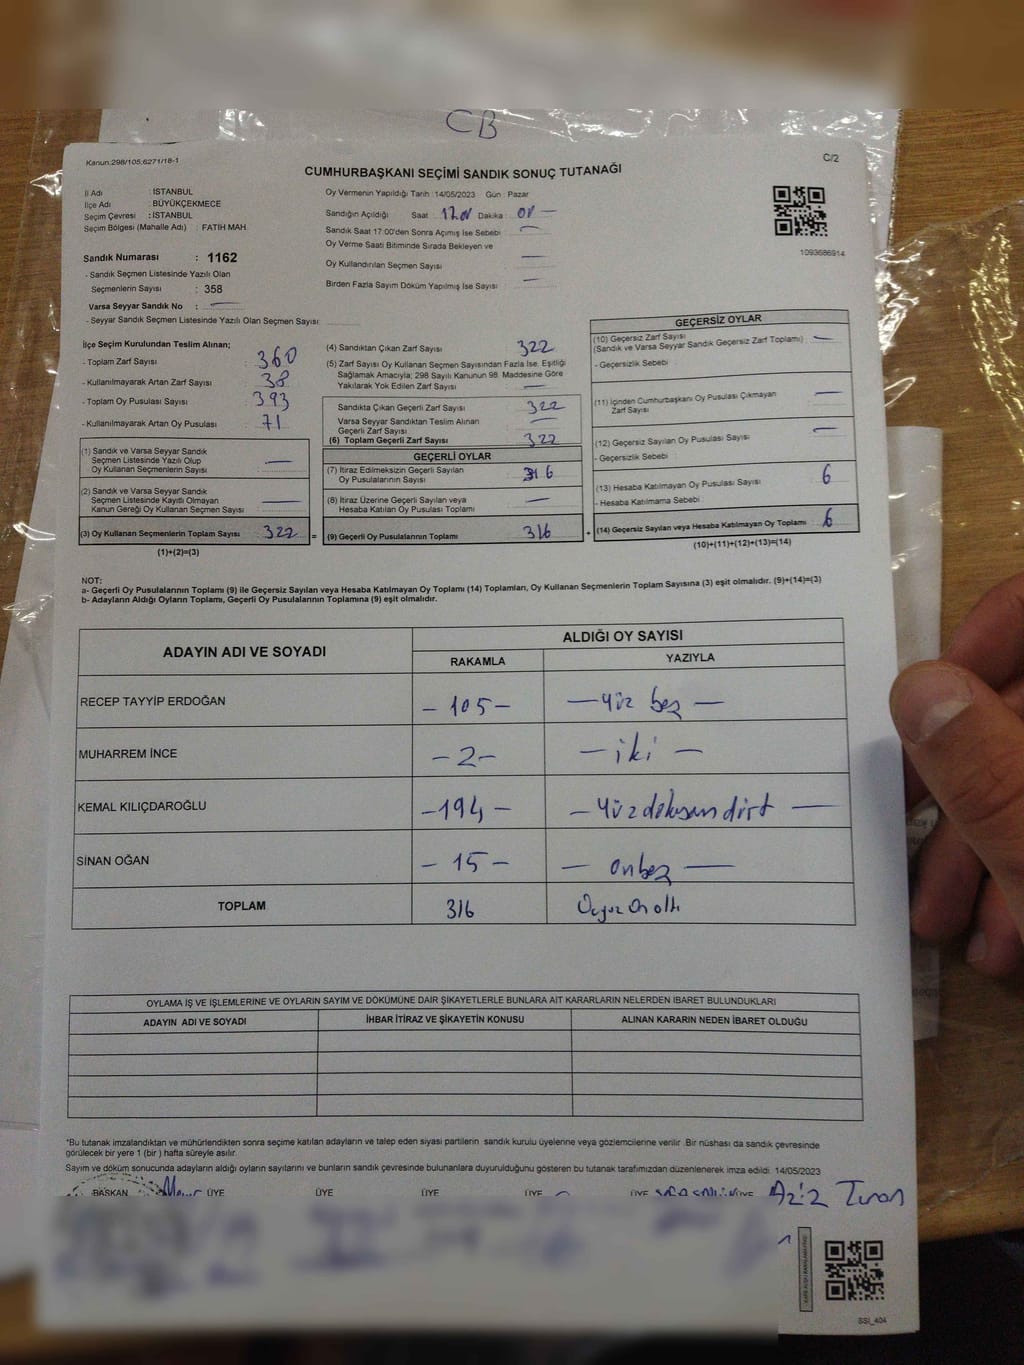 CB
Kanun:298/105,6271/18-1
C/2
CUMHURBAŞKANI SEÇİMİ SANDIK SONUÇ TUTANAĞI
İl Adı : İSTANBUL
İlçe Adı : BÜYÜKÇEKMECE
Seçim Çevresi : İSTANBUL
Seçim Bölgesi (Mahalle Adı) : FATİH MAH.
Sandık Numarası : 1162
- Sandık Seçmen Listesinde Yazılı Olan
Seçmenlerin Sayısı : 358
Varsa Seyyar Sandık No : —
- Seyyar Sandık Seçmen Listesinde Yazılı Olan Seçmen Sayısı:
Oy Vermenin Yapıldığı Tarih :14/05/2023 Gün : Pazar
Sandığın Açıldığı Saat : Dakika :
Sandık Saat 17.00'den Sonra Açımış İse Sebebi : —
Oy Verme Saati Bitiminde Sırada Bekleyen ve
Oy Kullandırılan Seçmen Sayısı : —
Birden Fazla Sayım Döküm Yapılmış İse Sayısı : —
1093686914
İlçe Seçim Kurulundan Teslim Alınan;
- Toplam Zarf Sayısı : 360
- Kullanılmayarak Artan Zarf Sayısı : 38
- Toplam Oy Pusulası Sayısı : 393
- Kullanılmayarak Artan Oy Pusulası : 71
(1) Sandık ve Varsa Seyyar Sandık
Seçmen Listesinde Yazılı Olup
Oy Kullanan Seçmenlerin Sayısı : —
(2) Sandık ve Varsa Seyyar Sandık
Seçmen Listesinde Kayıtlı Olmayan
Kanun Gereği Oy Kullanan Seçmen Sayısı : —
(3) Oy Kullanan Seçmenlerin Toplam Sayısı : 322 =
(1)+(2)=(3)
(4) Sandıktan Çıkan Zarf Sayısı : 322
(5) Zarf Sayısı Oy Kullanan Seçmen Sayısından Fazla İse, Eşitliği
Sağlamak Amacıyla; 298 Sayılı Kanunun 98. Maddesine Göre
Yakılarak Yok Edilen Zarf Sayısı : —
Sandıkta Çıkan Geçerli Zarf Sayısı : 322
Varsa Seyyar Sandıktan Teslim Alınan
Geçerli Zarf Sayısı : —
(6) Toplam Geçerli Zarf Sayısı : 322
GEÇERLİ OYLAR
(7) İtiraz Edilmeksizin Geçerli Sayılan
Oy Pusulalarının Sayısı : 316
(8) İtiraz Üzerine Geçerli Sayılan veya
Hesaba Katılan Oy Pusulası Toplamı : —
(9) Geçerli Oy Pusulalarının Toplamı : 316 +
GEÇERSİZ OYLAR
(10) Geçersiz Zarf Sayısı
(Sandık ve Varsa Seyyar Sandık Geçersiz Zarf Toplamı) : —
- Geçersizlik Sebebi :
(11) İçinden Cumhurbaşkanı Oy Pusulası Çıkmayan
Zarf Sayısı : —
(12) Geçersiz Sayılan Oy Pusulası Sayısı : —
- Geçersizlik Sebebi :
(13) Hesaba Katılmayan Oy Pusulası Sayısı : 6
- Hesaba Katılmama Sebebi :
(14) Geçersiz Sayılan veya Hesaba Katılmayan Oy Toplamı : 6
(10)+(11)+(12)+(13)=(14)
NOT:
a- Geçerli Oy Pusulalarının Toplamı (9) ile Geçersiz Sayılan veya Hesaba Katılmayan Oy Toplamı (14) Toplamları, Oy Kullanan Seçmenlerin Toplam Sayısına (3) eşit olmalıdır. (9)+(14)=(3)
b- Adayların Aldığı Oyların Toplamı, Geçerli Oy Pusulalarının Toplamına (9) eşit olmalıdır.
ADAYIN ADI VE SOYADI
ALDIĞI OY SAYISI
RAKAMLA YAZIYLA
RECEP TAYYİP ERDOĞAN - 105 - — yüz beş —
MUHARREM İNCE - 2 - — iki —
KEMAL KILIÇDAROĞLU - 194 - — yüzdoksandört —
SİNAN OĞAN - 15 - — onbeş —
TOPLAM 316 Üçyüz On altı
OYLAMA İŞ VE İŞLEMLERİNE VE OYLARIN SAYIM VE DÖKÜMÜNE DAİR ŞİKAYETLERLE BUNLARA AİT KARARLARIN NELERDEN İBARET BULUNDUKLARI
ADAYIN ADI VE SOYADI İHBAR İTİRAZ VE ŞİKAYETİN KONUSU ALINAN KARARIN NEDEN İBARET OLDUĞU
*Bu tutanak imzalandıktan ve mühürlendikten sonra seçime katılan adayların ve talep eden siyasi partilerin sandık kurulu üyelerine veya gözlemcilerine verilir. Bir nüshası da sandık çevresinde
görülecek bir yere 1 (bir ) hafta süreyle asılır.
Sayım ve döküm sonucunda adayların aldığı oyların sayılarını ve bunların sandık çevresinde bulunanlara duyurulduğunu gösteren bu tutanak tarafımızdan düzenlenerek imza edildi. 14/05/2023
BAŞKAN ÜYE ÜYE ÜYE ÜYE ÜYE ÜYE Aziz Turan
SSİ_404